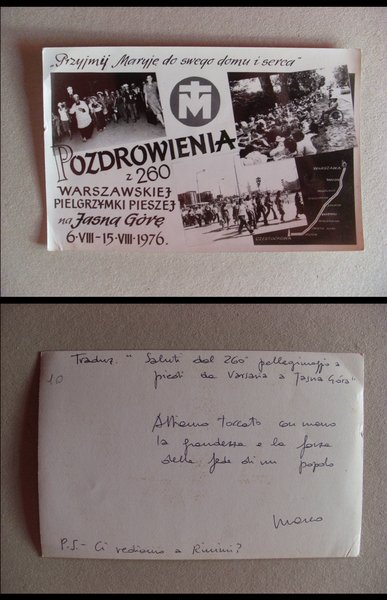 „Przyjmij Maryję do swego domu i serca”
M
POZDROWIENIA
z 260
WARSZAWSKIEJ
PIELGRZYMKI PIESZEJ
na Jasną Górę
6-VIII-15-VIII-1976.
WARSZAWA
CZĘSTOCHOWA
10
Traduz. "Saluti dal 260° pellegrinaggio a
piedi da Varsavia a Jasna Góra"
Abbiamo toccato con mano
la grandezza e la forza
della fede di un popolo
Marco
P.S.- Ci vediamo a Rimini?